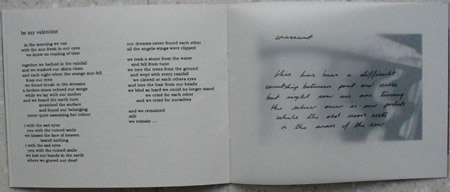 be my valentine
in the morning we ran
with the sun fresh in our eyes
we knew no reading of time
together we bathed in the rainfall
and we washed our skins clean
and each night when the orange sun fell
from our eyes
we found beads in the streams
a broken moon echoed our songs
while we lay with our mother
and we heard the earth turn
scratched the surface
and found our belonging
never quite assuming her colour
i with the sad eyes
you with the ruined smile
we kissed the face of heaven
tasted nothing
i with the sad eyes
you with the ruined smile
we lost our hands in the earth
where we grieved our dead
our dreams never found each other
all the angels wings were clipped
we took a stone from the water
and fell from time
we tore the trees from the ground
and wept with every rainfall
we clawed at each others eyes
and tore the heat from our hearts
we bled so hard we could no longer stand
we cried for each other
and we cried for ourselves
and we remained
still
we remain
this has been a difficult
something between past and
but right now we are
the silver in our pockets
while the rest
in the of the sea